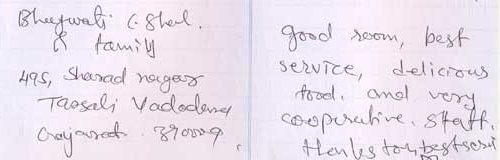 Bhagwati C. Shal.
& family
495, Sharad nagar
Tarsali Vadodara
Gujarat. 390009.
good room, best
service, delicious
food. and very
cooperative. staff.
thanks for, best servi